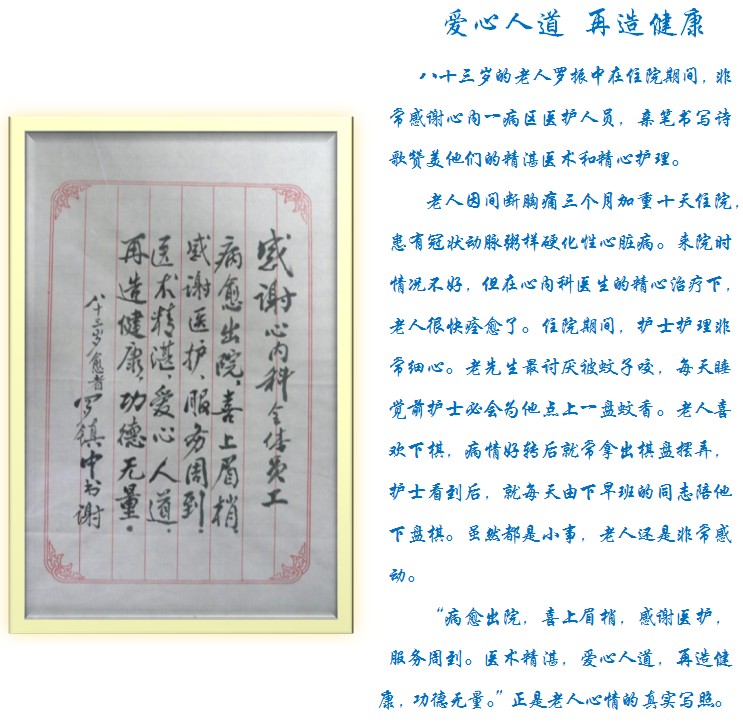 感谢心内科全体员工
病愈出院，喜上眉梢，
感谢医护、服务周到。
医术精湛、爱心人道，
再造健康，功德无量。
八十三岁愈者罗镇中书谢
爱心人道 再造健康
八十三岁的老人罗振中在住院期间，非
常感谢心内一病区医护人员，亲笔书写诗
歌赞美他们的精湛医术和精心护理。
老人因间断胸痛三个月加重十天住院，
患有冠状动脉粥样硬化性心脏病。来院时
情况不好，但在心内科医生的精心治疗下，
老人很快痊愈了。住院期间，护士护理非
常细心。老先生最讨厌被蚊子咬，每天睡
觉前护士必会为他点上一盘蚊香。老人喜
欢下棋，病情好转后就常拿出棋盘摆弄，
护士看到后，就每天由下早班的同志陪他
下盘棋。虽然都是小事，老人还是非常感
动。
“病愈出院，喜上眉梢，感谢医护，
服务周到。医术精湛，爱心人道，再造健
康，功德无量。”正是老人心情的真实写照。